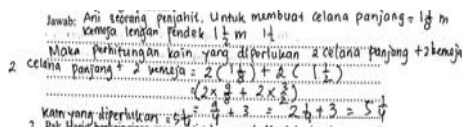 Jawab: Ani seorang penjahit. Untuk membuat celana panjang = 1 1/8 m
kemeja lengan pendek 1 1/2 m 1 1/2
Maka perhitungan kain yang diperlukan 2 celana panjang + 2 kemeja
2 celana panjang + 2 kemeja = 2 (1 1/8) + 2 (1 1/2)
= (2 x 9/8 + 2 x 3/2)
Kain yang diperlukan = 5 1/4 = 9/4 + 3 = 2 1/4 + 3 = 5 1/4